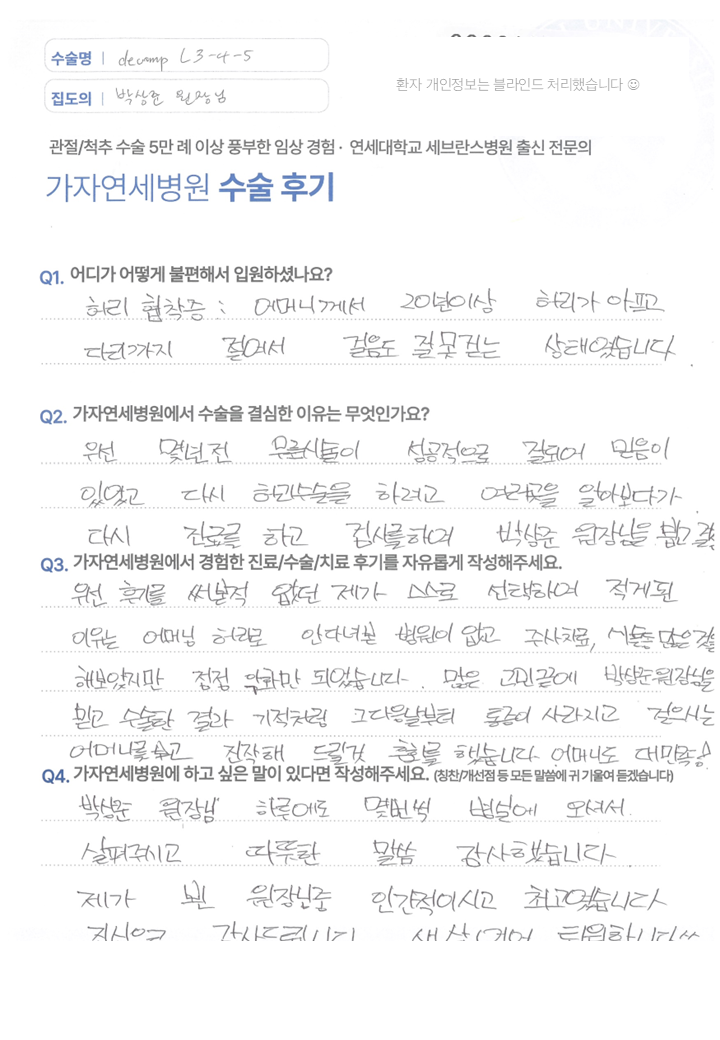 수술명 | decomp L3-4-5
환자 개인정보는 블라인드 처리했습니다 ☺
집도의 | 박상준 원장님
관절/척추 수술 5만 례 이상 풍부한 임상 경험 · 연세대학교 세브란스병원 출신 전문의
가자연세병원 수술 후기
Q1. 어디가 어떻게 불편해서 입원하셨나요?
허리 협착증 : 어머니께서 20년이상 허리가 아프고
다리까지 절여서 걸음도 잘 못 걷는 상태였습니다.
Q2. 가자연세병원에서 수술을 결심한 이유는 무엇인가요?
우선 몇년전 무릎시술이 성공적으로 잘되어 믿음이
있었고 다시 허리수술을 하려고 여러곳을 알아보다가
다시 진료를 하고 검사를하여 박상준 원장님을 뵙고
Q3. 가자연세병원에서 경험한 진료/수술/치료 후기를 자유롭게 작성해주세요.
우선 후기를 써본적 없던 제가 스스로 선택하여 적게된
이유는 어머님 허리로 안다녀본 병원이 없고 주사치료, 시술등 많은것을
해보았지만 점점 악화만 되었습니다. 많은 고민끝에 박상준원장님을
믿고 수술한 결과 기적처럼 그다음날부터 통증이 사라지고 걸으시는
어머니를 보고 진작해 드릴것 후회를 했습니다 어머니도 대만족!
Q4. 가자연세병원에 하고 싶은 말이 있다면 작성해주세요. (칭찬/개선점 등 모든 말씀에 귀 기울여 듣겠습니다)
박상준 원장님 하루에도 몇번씩 병실에 오셔서
살펴주시고 따뜻한 말씀 감사했습니다
제가 뵌 원장님중 인간적이시고 최고였습니다
진심으로 감사드립니다 퇴원합니다